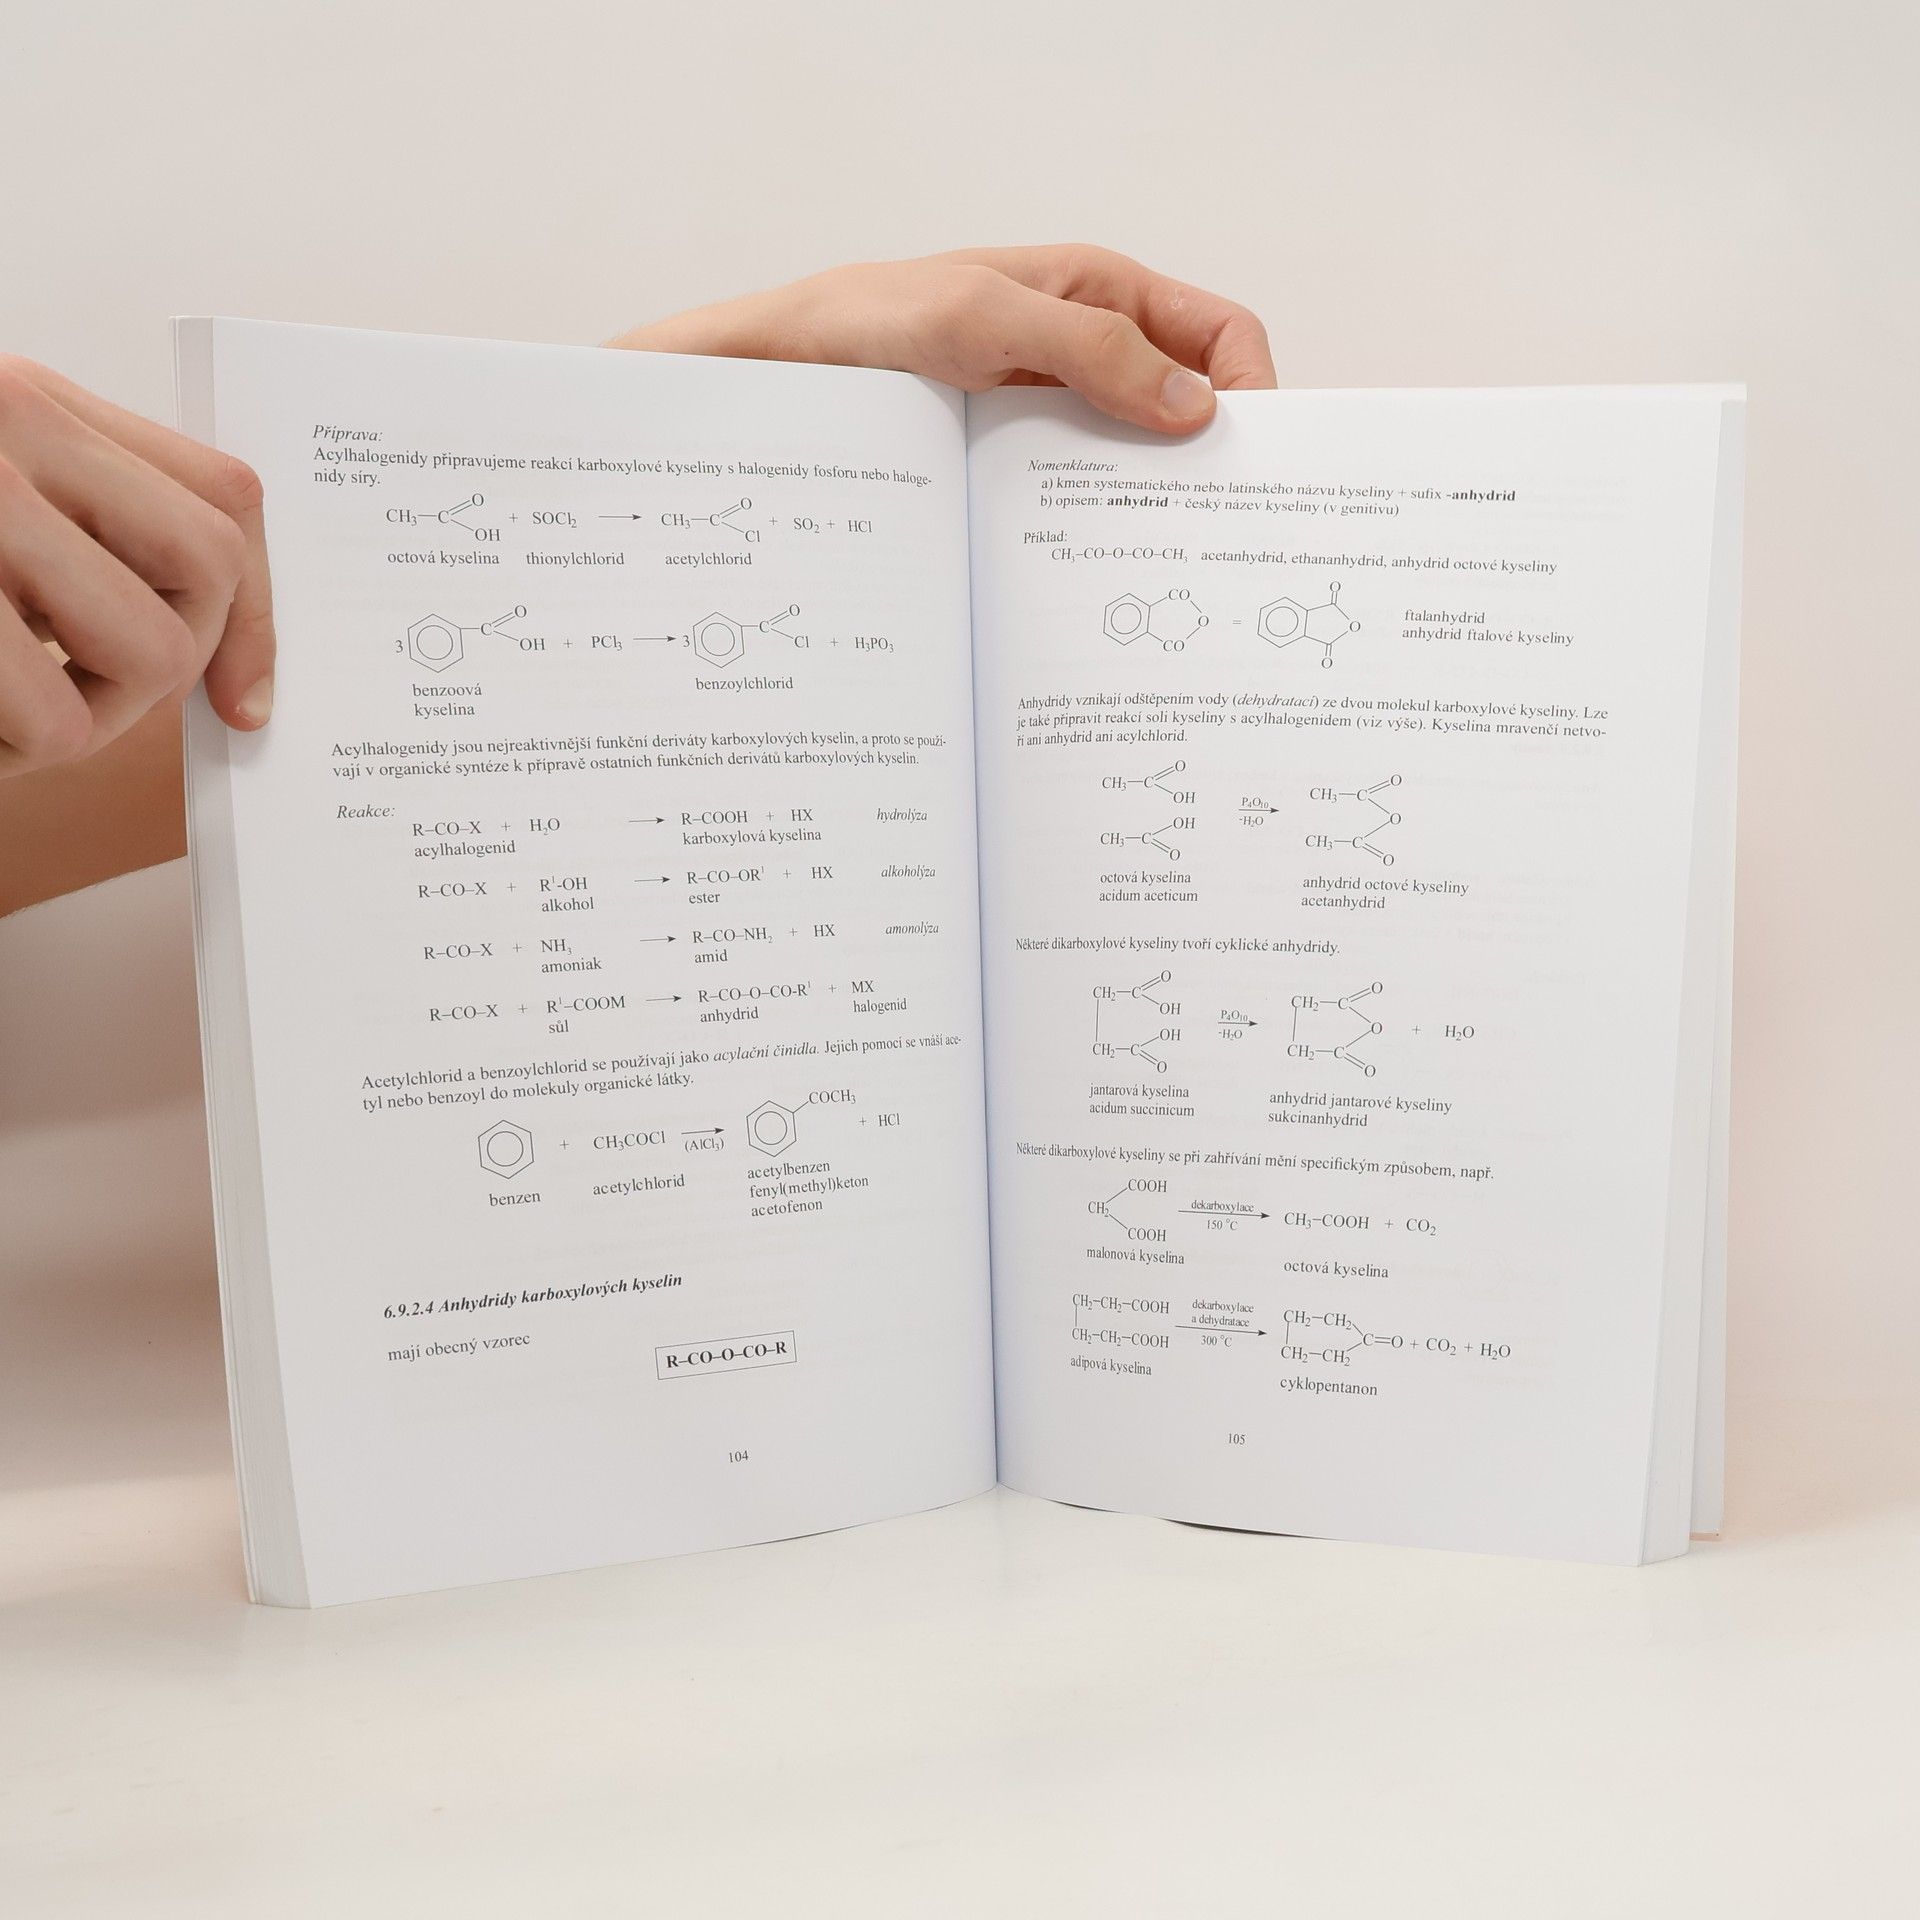 Příprava:
Acylhalogenidy připravujeme reakcí karboxylové kyseliny s halogenidy fosforu nebo haloge-
nidy síry.
CH₃–C(=O)–OH + SOCl₂ ⟶ CH₃–C(=O)–Cl + SO₂ + HCl
octová kyselina thionylchlorid acetylchlorid
3 C(=O)–OH + PCl₃ ⟶ 3 C(=O)–Cl + H₃PO₃
benzoová benzoylchlorid
kyselina
Acylhalogenidy jsou nejreaktivnější funkční deriváty karboxylových kyselin, a proto se použí-
vají v organické syntéze k přípravě ostatních funkčních derivátů karboxylových kyselin.
Reakce:
R–CO–X + H₂O ⟶ R–COOH + HX hydrolýza
acylhalogenid karboxylová kyselina
R–CO–X + R¹-OH ⟶ R–CO–OR¹ + HX alkoholýza
alkohol ester
R–CO–X + NH₃ ⟶ R–CO–NH₂ + HX amonolýza
amoniak amid
R–CO–X + R¹–COOM ⟶ R–CO–O–CO-R¹ + MX
sůl anhydrid halogenid
Acetylchlorid a benzoylchlorid se používají jako acylační činidla. Jejich pomocí se vnáší ace-
tyl nebo benzoyl do molekuly organické látky.
COCH₃
+ CH₃COCl ⟶ (AlCl₃) + HCl
benzen acetylchlorid acetylbenzen
fenyl(methyl)keton
acetofenon
6.9.2.4 Anhydridy karboxylových kyselin
mají obecný vzorec R–CO–O–CO–R
104
Nomenklatura:
a) kmen systematického nebo latinského názvu kyseliny + sufix -anhydrid
b) opisem: anhydrid + český název kyseliny (v genitivu)
Příklad:
CH₃–CO–O–CO–CH₃ acetanhydrid, ethananhydrid, anhydrid octové kyseliny
CO O
O = O
CO O
ftalanhydrid
anhydrid ftalové kyseliny
Anhydridy vznikají odštěpením vody (dehydratací) ze dvou molekul karboxylové kyseliny. Lze
je také připravit reakcí soli kyseliny s acylhalogenidem (viz výše). Kyselina mravenčí netvo-
ří ani anhydrid ani acylchlorid.
CH₃–C(=O)–OH P₄O₁₀ CH₃–C(=O)
OH -H₂O O
CH₃–C(=O) CH₃–C(=O)
octová kyselina anhydrid octové kyseliny
acidum aceticum acetanhydrid
Některé dikarboxylové kyseliny tvoří cyklické anhydridy.
CH₂–C(=O)–OH P₄O₁₀ CH₂–C(=O)
OH -H₂O O + H₂O
CH₂–C(=O) CH₂–C(=O)
jantarová kyselina anhydrid jantarové kyseliny
acidum succinicum sukcinanhydrid
Některé dikarboxylové kyseliny se při zahřívání mění specifickým způsobem, např.
COOH
CH₂ dekarboxylace 150 °C ⟶ CH₃–COOH + CO₂
COOH
malonová kyselina octová kyselina
CH₂–CH₂–COOH dekarboxylace CH₂–CH₂
a dehydratace C=O + CO₂ + H₂O
CH₂–CH₂–COOH 300 °C CH₂–CH₂
adipová kyselina cyklopentanon
105